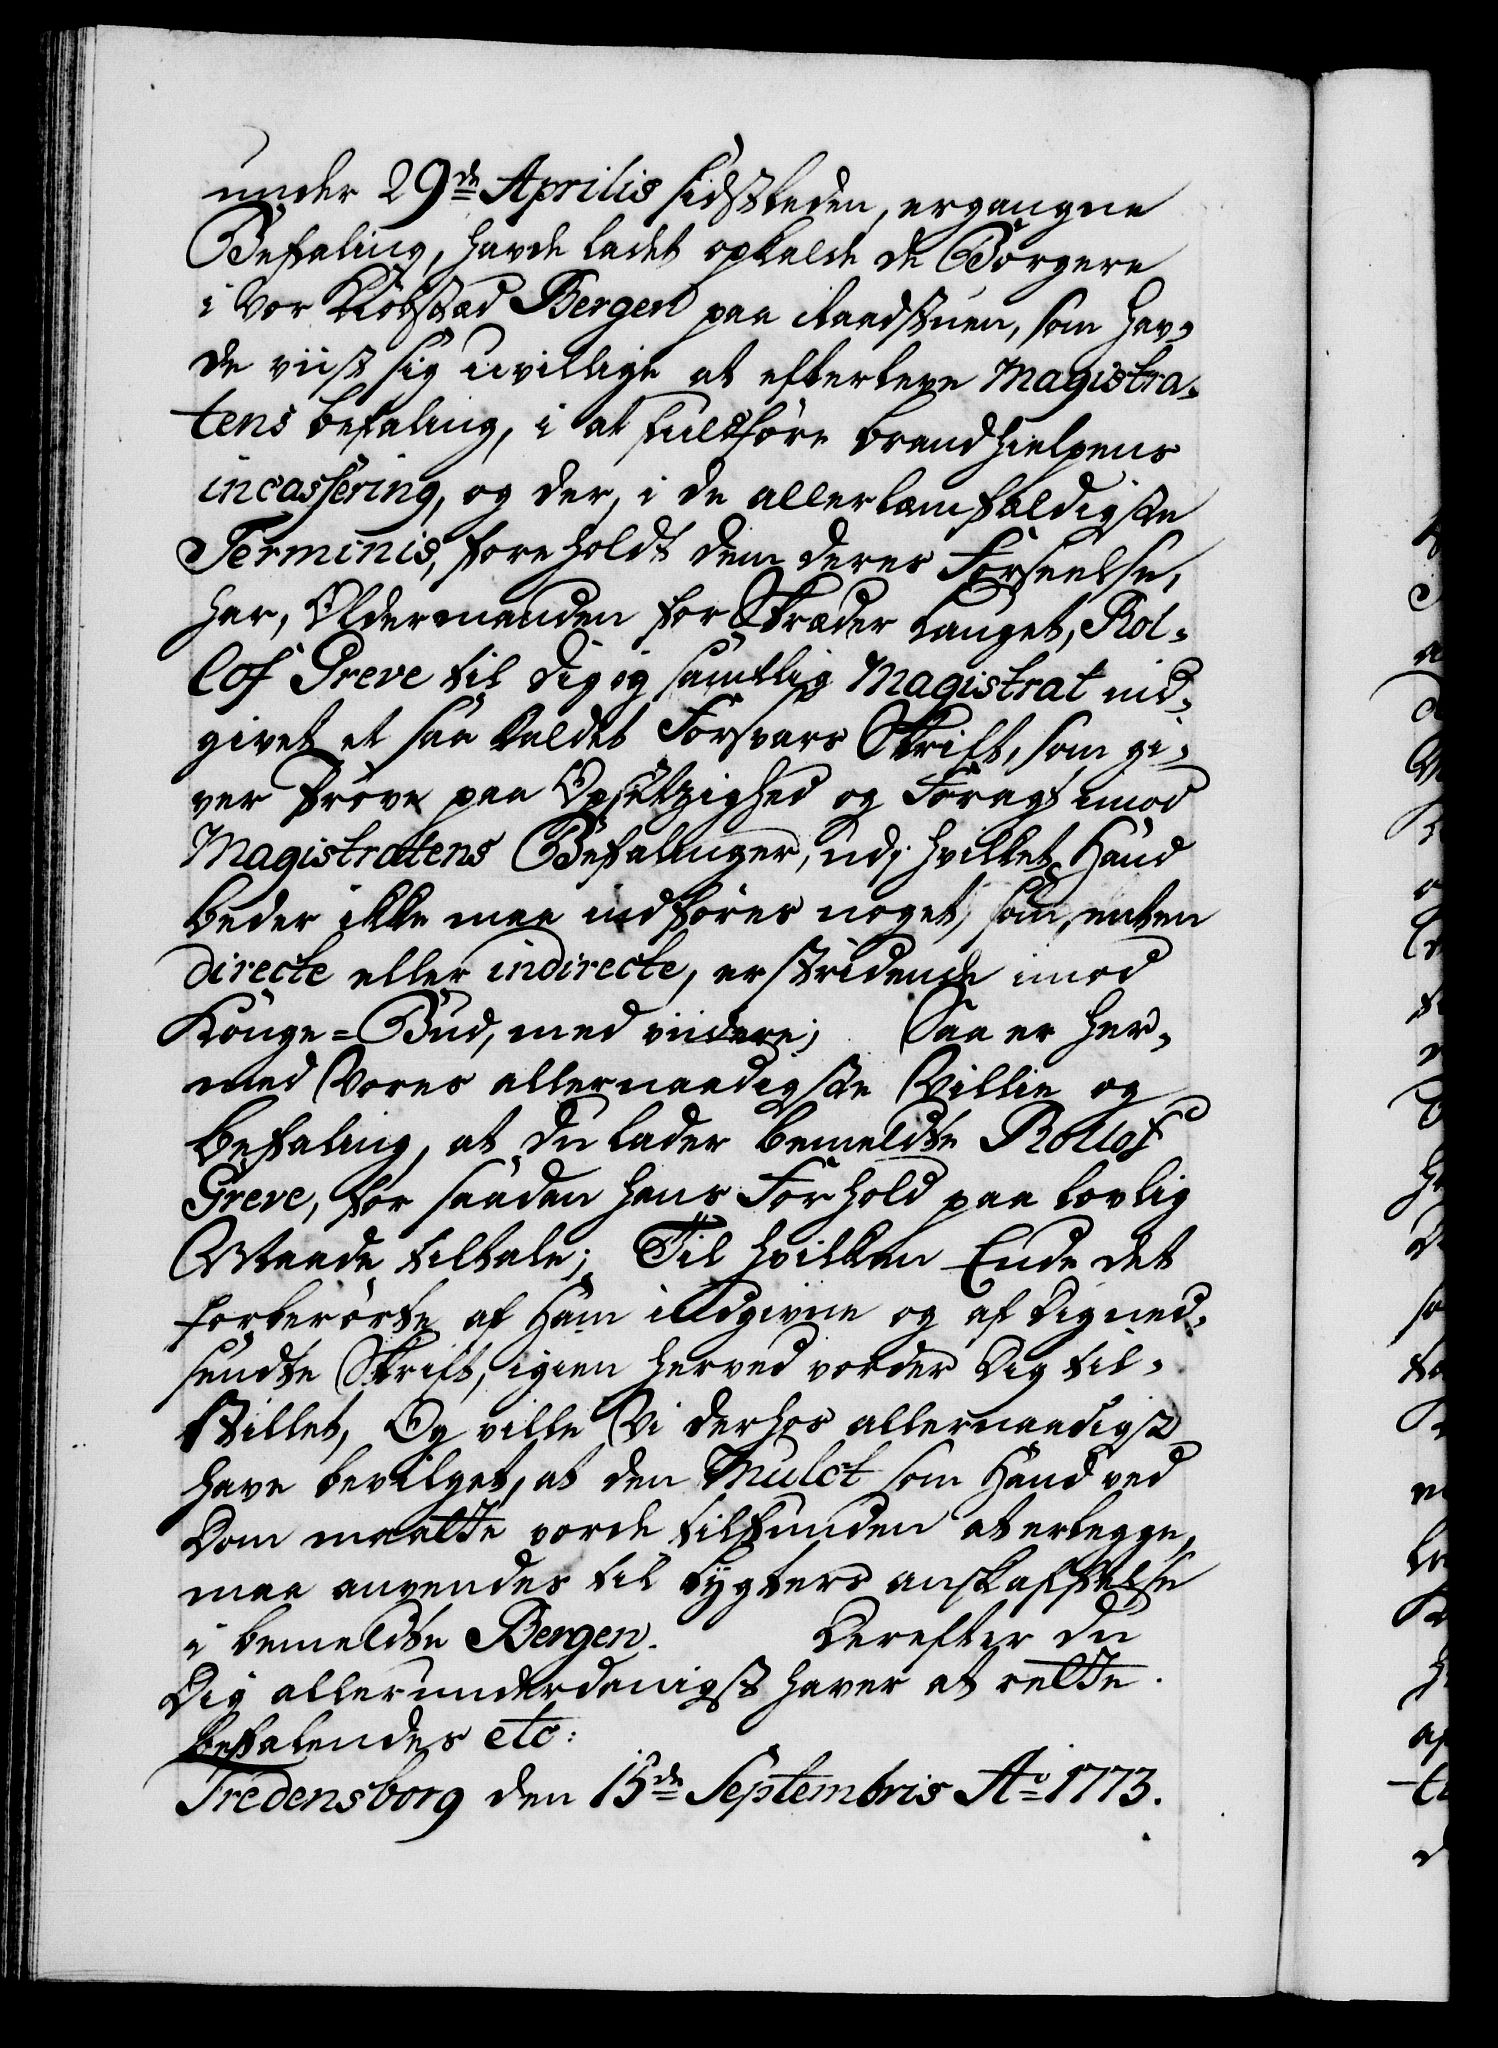 under 29de Aprilis sidstleden, ergangne
Befaling, havde ladet opkalde de Borgere
i Vor Kiøbstæd Bergen paa Raadstuen, som hav-
de viist sig uvillige at efterleve Magistra-
tens befaling, i at fuldføre brandhielpens
incassering, og der, i de allerlemfældigste
Terminis, foreholdt dem deres Forseelse,
har, Oldermanden for Skræder Lauget, Rol-
lof Greve til Dig og samtlig Magistrat ind-
givet et saa kaldet Forsvars Skrift, som gi-
ver Prøve paa Opsetzighed og Foragt imod
Magistratens Befalinger, udj hvilket Hand
beder ikke maa indføres noget, som, enten
directe eller indirecte, er stridende imod
Konge-Bud, med viidere; Saa er her-
med Vores allernaadigste Villie og
befaling, at du lader bemeldte Rollof
Greve, for saadan hans Forhold paa lovlig
Maade tiltale; Til hvilken Ende det
forberørte af Ham indgivne og af Dig ned-
sendte Skrift, igien herved vorder Dig til-
stillet, Og ville Vi derhos allernaadigst
have bevilget, at den Mulct som Hand ved
Dom maatte vorde tilfunden at erlegge,
maa anvendes til Sygters anskaffelse
i bemeldte Bergen. Derefter du
Dig allerunderdanigst haver at rette.
befalendes etc:
Fredensborg den 15de Septembris Ao 1773.